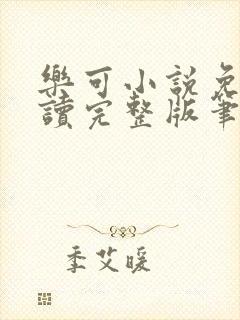 樂可小說免
讀完整版筆
季艾暖